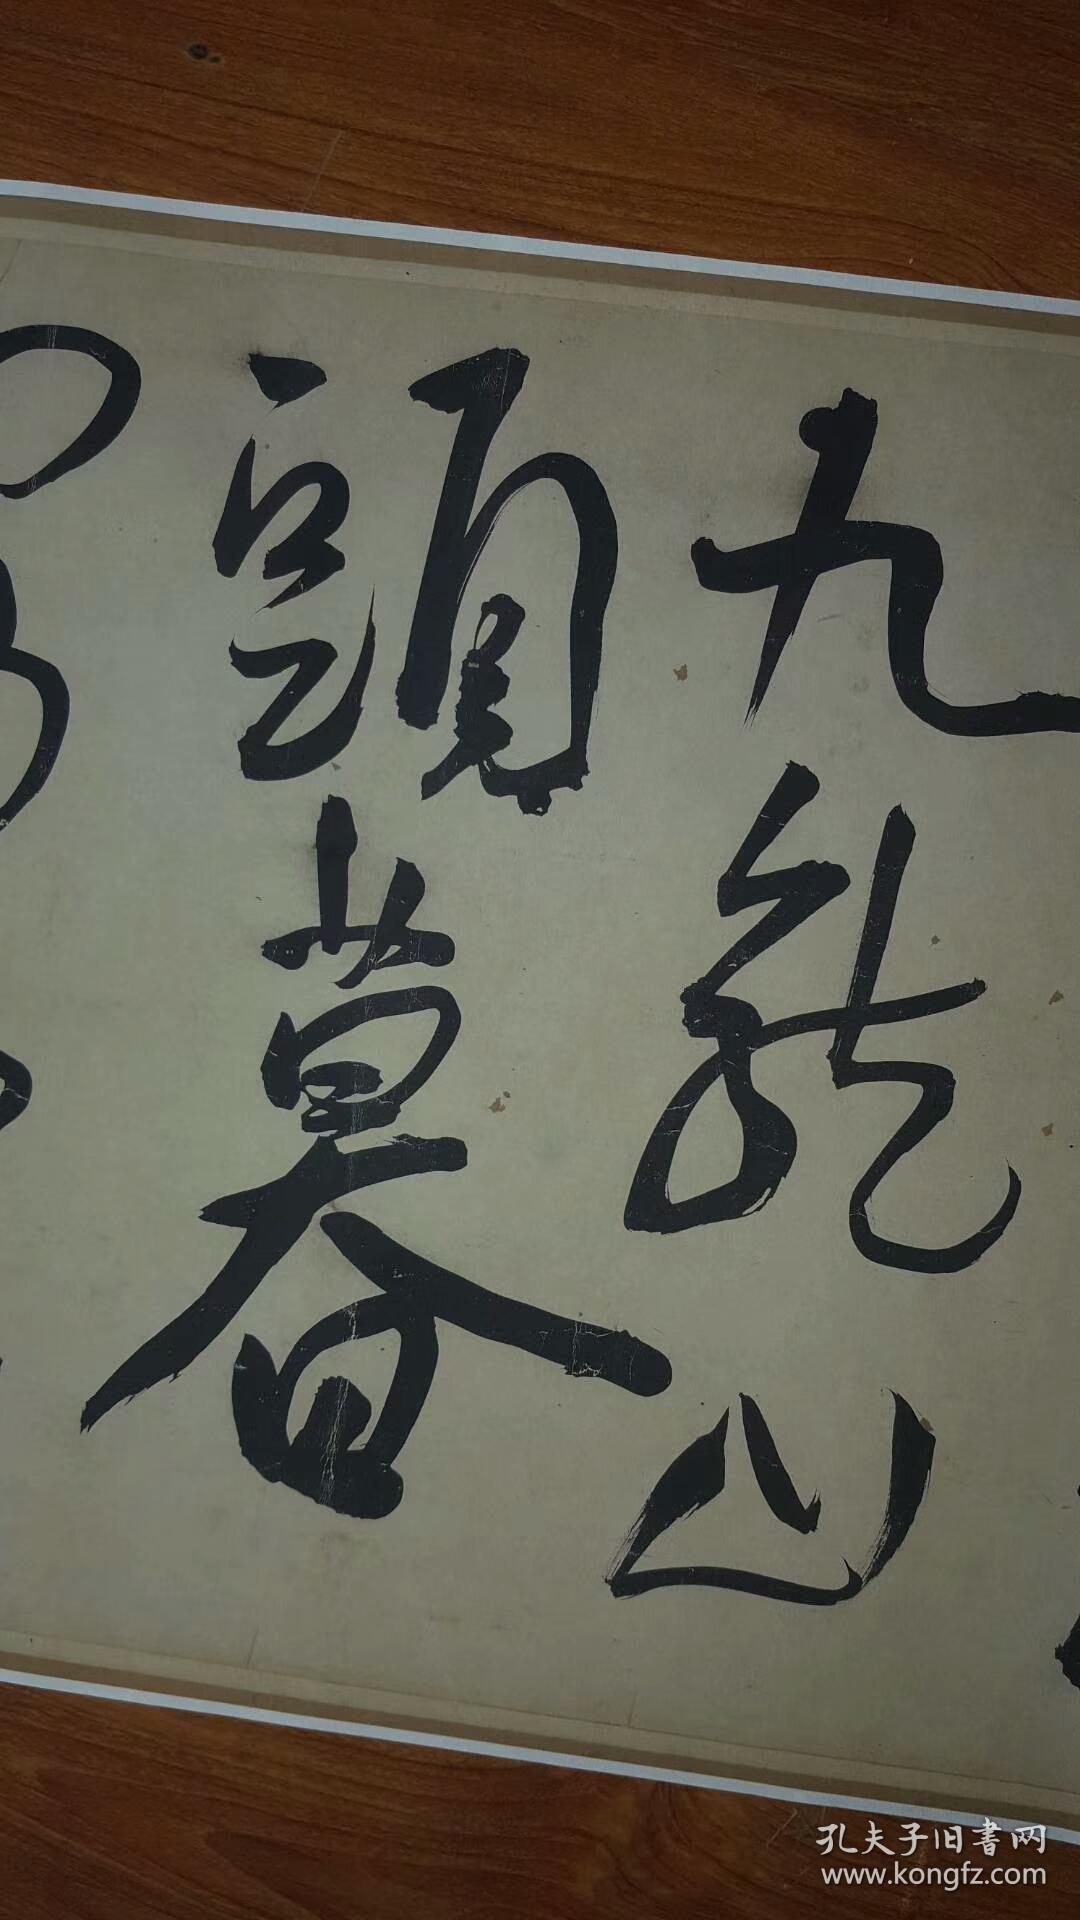 九龍山
頭暮
孔夫子旧書网
www.kongfz.com